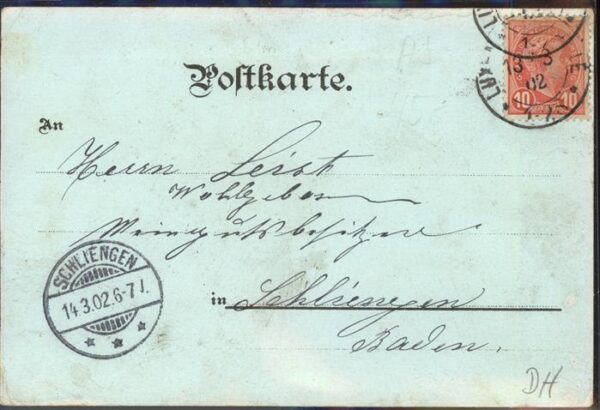 Postkarte.
13 3
02
10 10
An
Herrn Leist
Wohlgeboren
Weingutsbesitzer
SCHLIENGEN
14.3.02.6-7 N.
in Schliengen
Baden.
DH